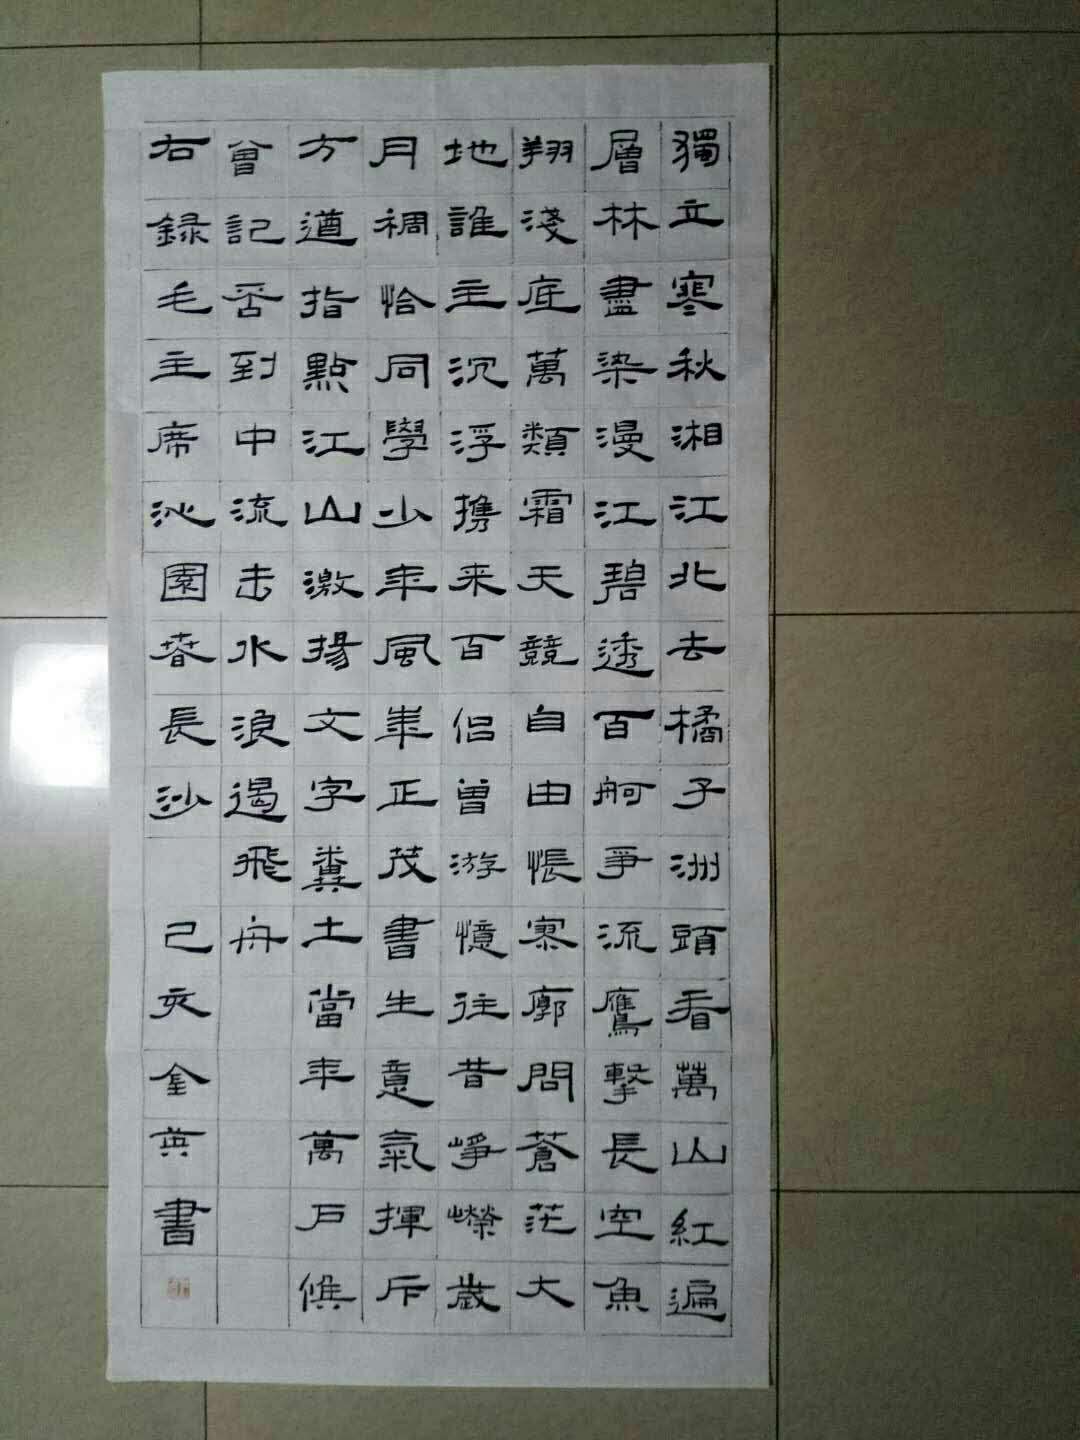 獨立寒秋湘江北去橘子洲頭看萬山紅遍
層林盡染漫江碧透百舸爭流鷹擊長空魚
翔淺底萬類霜天競自由悵寥廓問蒼茫大
地誰主沉浮攜来百侣曾游憶往昔崢嶸歲
月稠恰同學少年風華正茂書生意氣揮斥
方遒指點江山激揚文字糞土當年萬户侯
曾記否到中流击水浪遏飛舟
右録毛主席沁園春長沙 己亥金英書